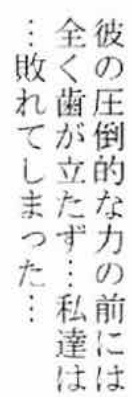 彼の圧倒的な力の前には
全く歯が立たず…私達は
…敗れてしまった…